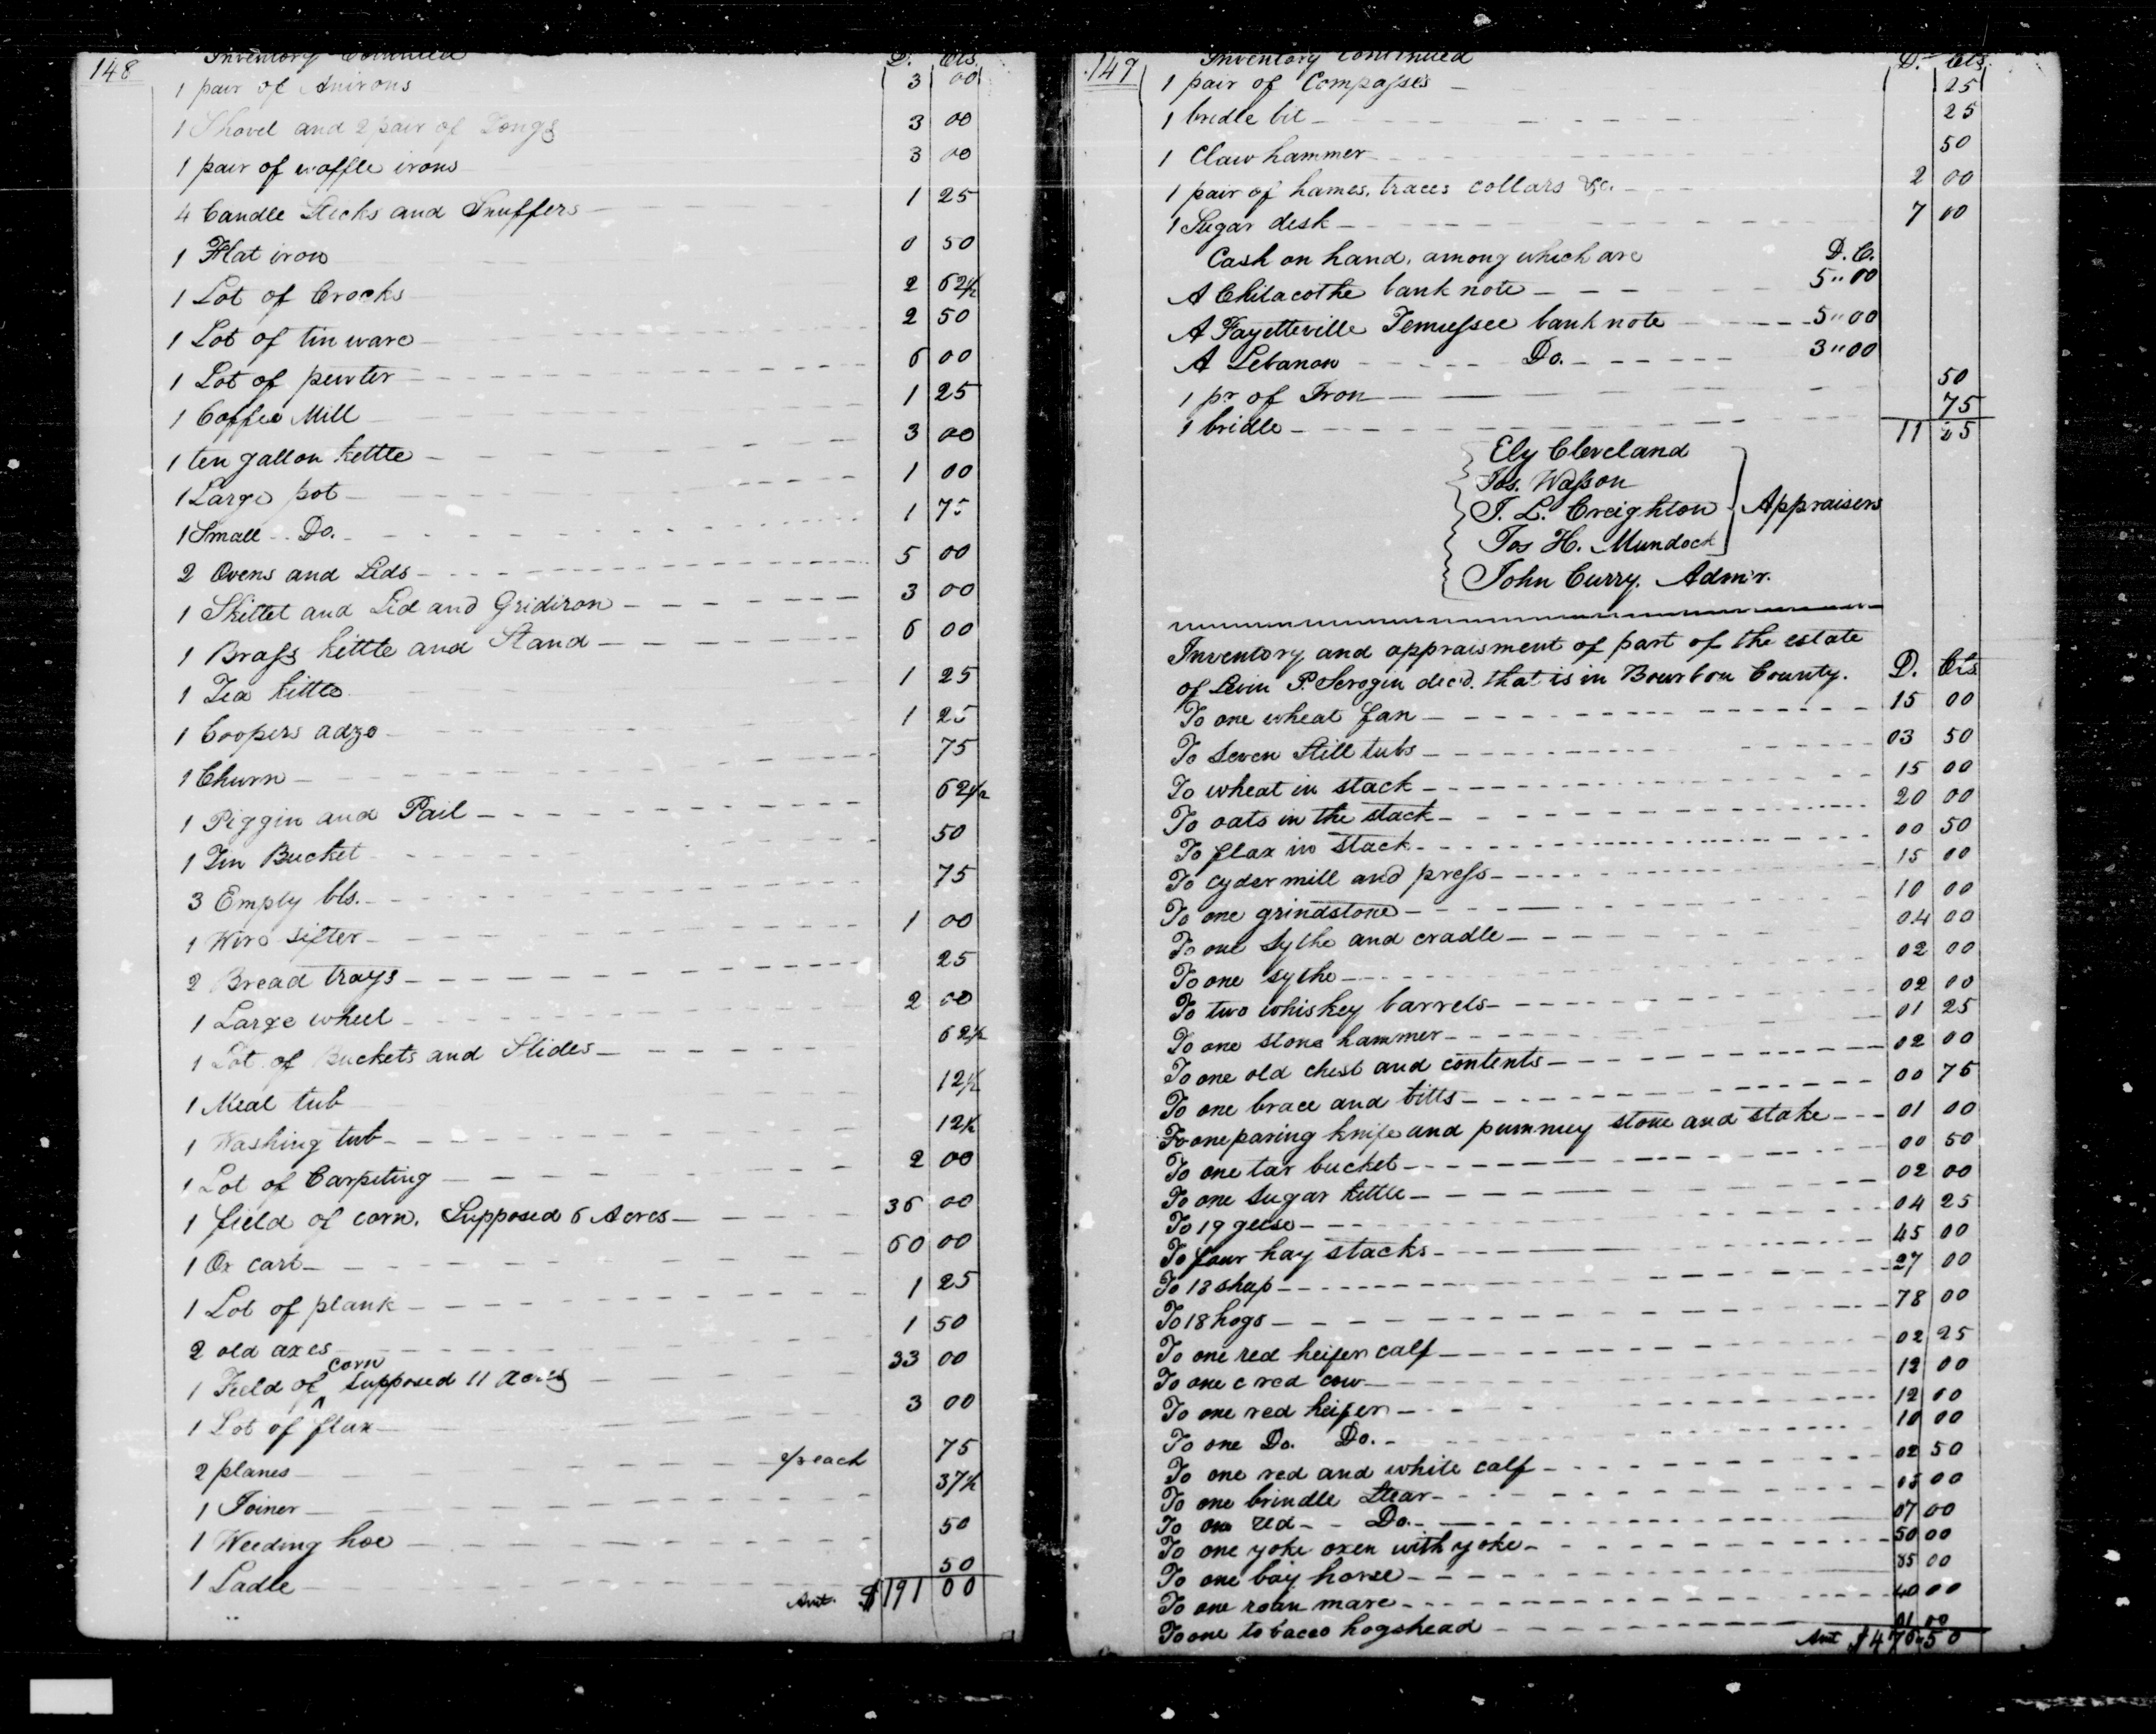 148
Inventory Continued D. Cts.
1 pair of Anirons 3 00
1 Shovel and 2 pair of Tongs 3 00
1 pair of waffle irons 3 00
4 Candle Sticks and Snuffers 1 25
1 Flat iron 0 50
1 Lot of Crocks 2 62½
1 Lot of tin ware 2 50
1 Lot of pewter 6 00
1 Coffee Mill 1 25
1 ten gallon kettle 3 00
1 Large pot 1 00
1 Small Do. 1 75
2 Ovens and Lids 5 00
1 Skillet and Lid and Gridiron 3 00
1 Brass kettle and Stand 6 00
1 Tea kittle 1 25
1 Coopers adze 1 25
1 Churn 75
1 Piggin and Pail 62½
1 Tin Bucket 50
3 Empty bls. 75
1 Wire sifter 1 00
2 Bread trays 25
1 Large wheel 2 00
1 Lot of Buckets and Slides 62½
1 Meal tub 12½
1 Washing tub 12½
1 Lot of Carpeting 2 00
1 field of corn. Supposed 6 Acres 36 00
1 Ox cart 60 00
1 Lot of plank 1 25
2 old axes 1 50
1 Field of corn supposed 11 acres 33 00
1 Lot of flax 3 00
2 planes each 75
1 Joiner 37½
1 Weeding hoe 50
1 Ladle 50
Amt. $ 191 00
149
Inventory continued D. Cts.
1 pair of Compasses 25
1 bridle bit 25
1 Claw hammer 50
1 pair of hames, traces collars &c. 2 00
1 Sugar desk 7 00
Cash on hand, among which are D. C.
A Chilacothe bank note 5"00
A Fayetteville Tennessee bank note 5"00
A Lebanon Do. 3"00
1 pr of Iron 50
1 bridle 75
11 25
Ely Cleveland
Jos. Wasson
J. L. Creighton Appraisers
Jos H. Mundock
John Curry. Adm'r.
Inventory and appraisment of part of the estate
of Levin P. Scrogin decd. that is in Bourbon County. D. Cts
To one wheat fan 15 00
To seven Still tubs 03 50
To wheat in stack 15 00
To oats in the stack 20 00
To flax in stack 00 50
To cyder mill and press 15 00
To one grindstone 10 00
To one sythe and cradle 04 00
To one sythe 02 00
To two whiskey barrels 02 00
To one stone hammer 01 25
To one old chest and contents 02 00
To one brace and bitts 00 75
To one paring knife and pummey stone and stake 01 00
To one tar bucket 00 50
To one sugar kettle 02 00
To 19 geese 04 25
To four hay stacks 45 00
To 18 shep 27 00
To 18 hogs 78 00
To one red heifer calf 02 25
To one c red cow 12 00
To one red heifer 12 00
To one Do. Do. 10 00
To one red and white calf 02 50
To one brindle Stear 05 00
To one red Do. 07 00
To one yoke oxen with yoke 50 00
To one bay horse 35 00
To one roan mare 40 00
To one tobacco hogshead 01 00
Amt $ 476 50